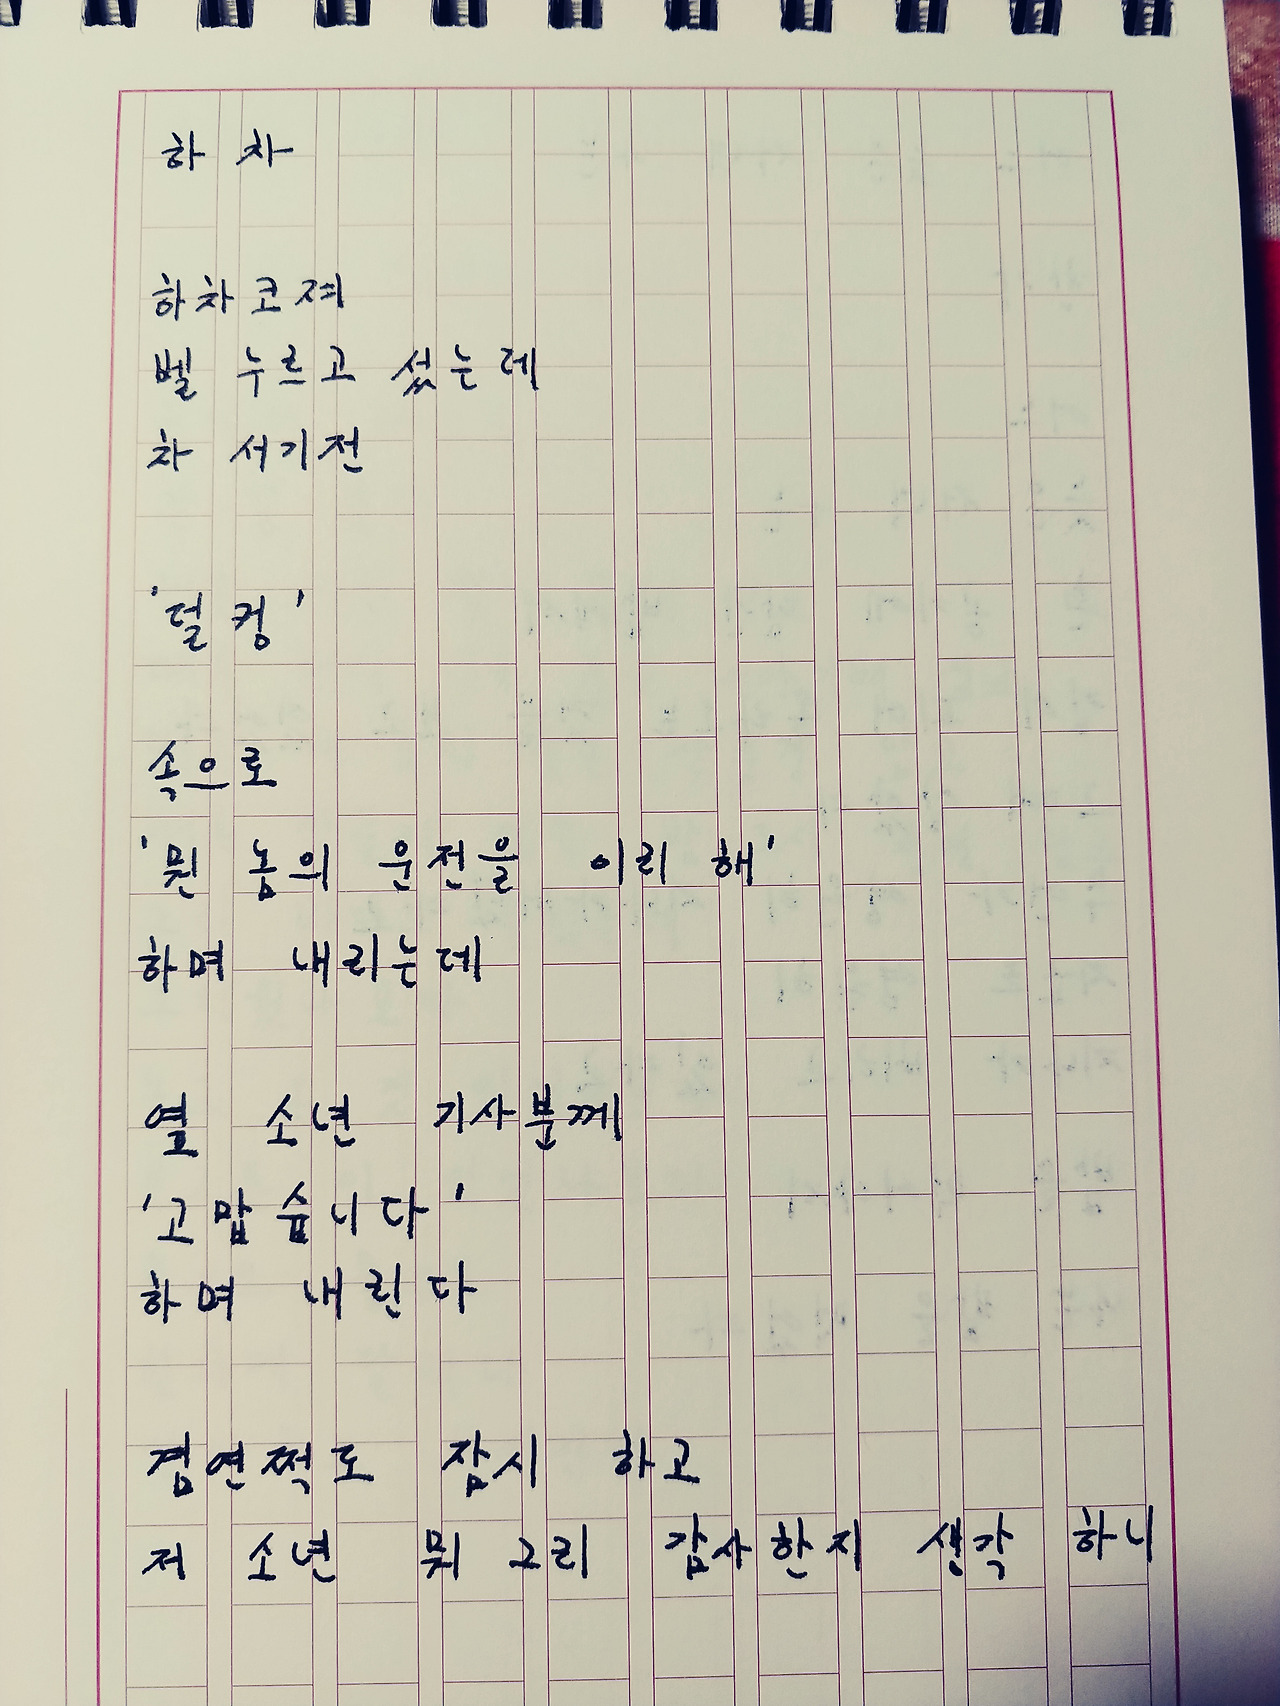 하차
하차코져
벨 누르고 섰는데
차 서기전
'덜컹'
속으로
'뭔 놈의 운전을 이리 해'
하며 내리는데
옆 소년 기사분께
'고맙습니다'
하며 내린다
겸연쩍도 잠시 하고
저 소년 뭐 그리 감사한지 생각 하니